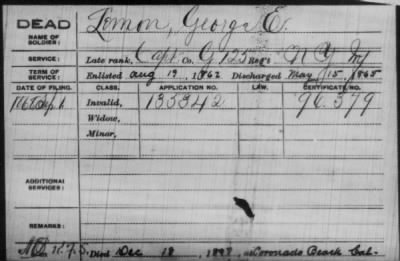 DEAD
NAME OF SOLDIER: Lemon, George E.
SERVICE: Late rank, Capt. Co. G, 125 Reg't N Y Inf
TERM OF SERVICE: Enlisted Aug 19, 1862 Discharged May 15, 1865
DATE OF FILING. CLASS. APPLICATION NO. LAW. CERTIFICATE NO.
1868 Invalid, 133342 96.379
Widow,
Minor,
ADDITIONAL SERVICES:
REMARKS:
Died Dec 18, 189 at Coronado Beach Cal-